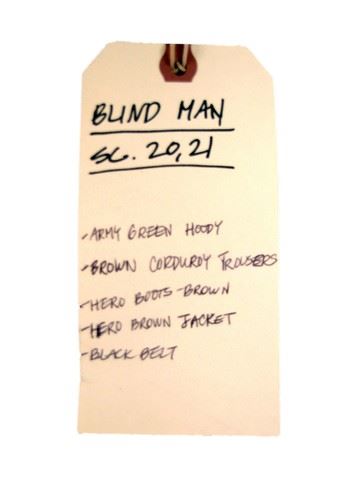 BLIND MAN
SC. 20,21
-ARMY GREEN HOODY
-BROWN CORDUROY TROUSERS
-HERO BOOTS-BROWN
-HERO BROWN JACKET
-BLACK BELT